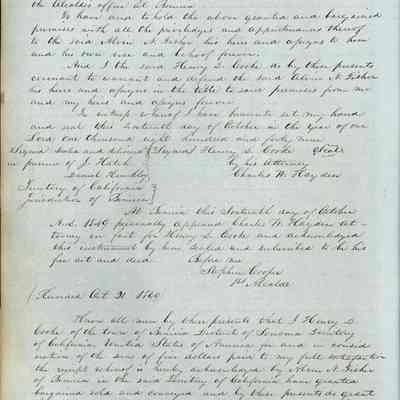 the Alcaldes office at Benicia
To have and to hold the above granted and bargained
premises with all the priviledges and appurtenances thereof
to the said Alvin N. Fisher his heirs and assigns to him
and his own use and behoof forever.
And I the said Henry S. Cooke do by these presents
covenant to warrant and defend the said Alvin N. Fisher
his heirs and assigns in the title to said premises from me
and my heirs and assigns forever
In witness whereof I have hereunto set my hand
and seal this sixteenth day of October in the year of our
Lord one thousand eight hundred and forty nine
Signed sealed and delivered } Signed Henry S. Cooke Seal
in presence of J. Hatch by his Attorney
Daniel Charles W. Hayden
Territory of California }
jurisdiction of Benicia }
At Benicia this Sixteenth day of October
A.D. 1849 personally appeared Charles W. Hayden At-
torney in fact for Henry S. Cooke and acknowledged
this instrument by him sealed and subscribed to be his
free act and deed. Before me
Stephen Cooper
1st Alcalde
Received Oct 21 1849
Know all men by these presents that I Henry S.
Cooke of the town of Benicia District of Sonoma Territory
of California United States of America for and in consid
eration of the sum of five dollars paid to my full satisfaction
the receipt whereof is hereby acknowledged by Alvin N. Fisher
of Benicia in the said Territory of California have granted
bargained sold and conveyed and by these presents do grant